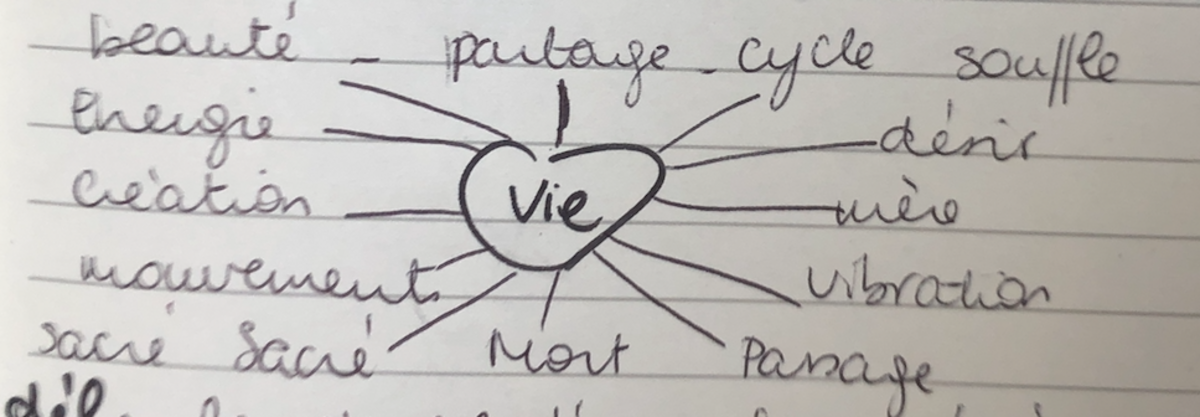 beauté - partage - cycle souffle
énergie désir
création Vie mère
mouvement vibration
sacré sacré Mort Passage